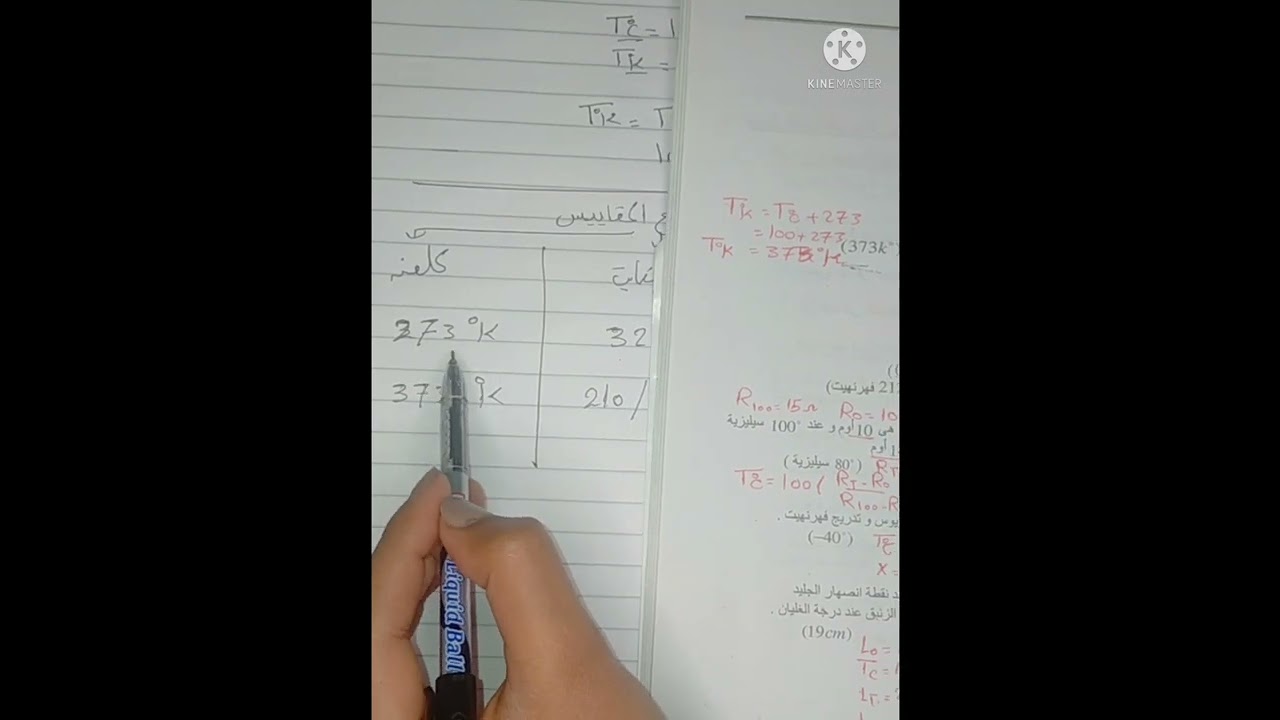 KINEMASTER
T°C = 1
TK =
T°K = T
المقاييس
كلفنه
273 °K
32
373 °K
210/
TK = T°C + 273
= 100 + 273
(373k°)
T°K = 373°K
21 فهرنهيت)
R100 = 15Ω R0 = 10
هى 10 أوم و عند °100 سيليزية
أوم
(80° سيليزية)
RT
T°C = 100 ( RT - R0
R100 - R
يوس و تدريج فهرنهيت .
(−40°)
T°C
x =
د نقطة انصهار الجليد
الزئبق عند درجة الغليان .
(19cm)
L0 =
TC =
LT =
Liquid Ball